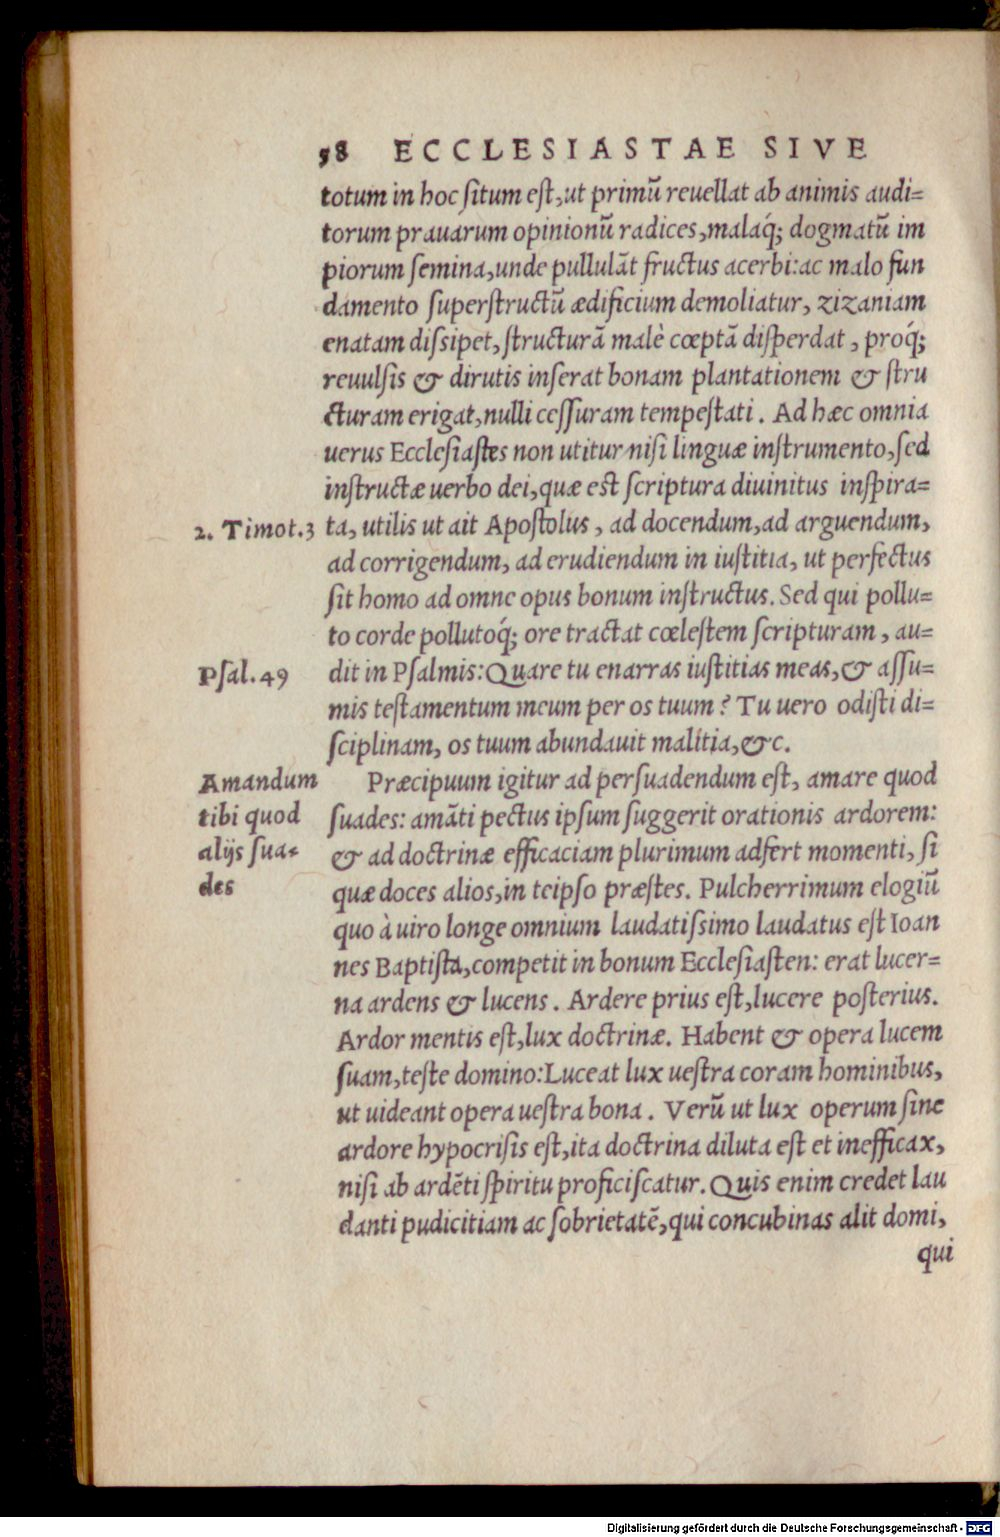 58 ECCLESIASTAE SIVE
totum in hoc ſitum eſt, ut primū reuellat ab animis audi=
torum prauarum opinionū radices, malaq́; dogmatū im
piorum ſemina, unde pullulāt fructus acerbi: ac malo fun
damento ſuperſtructū ædificium demoliatur, zizaniam
enatam diſsipet, ſtructurā malè cœptā diſperdat, proq́;
reuulſis & dirutis inſerat bonam plantationem & ſtru
cturam erigat, nulli ceſſuram tempeſtati. Ad hæc omnia
uerus Eccleſiaſtes non utitur niſi linguæ inſtrumento, ſed
inſtructæ uerbo dei, quæ est ſcriptura diuinitus inſpira=
2. Timot. 3 ta, utilis ut ait Apoſtolus, ad docendum, ad arguendum,
ad corrigendum, ad erudiendum in iuſtitia, ut perfectus
ſit homo ad omne opus bonum inſtructus. Sed qui pollu=
to corde pollutoq́; ore tractat cœleſtem ſcripturam, au=
Pſal. 49 dit in Pſalmis: Quare tu enarras iuſtitias meas, & aſſu=
mis teſtamentum meum per os tuum? Tu uero odiſti di=
ſciplinam, os tuum abundauit malitia, &c.
Amandum Præcipuum igitur ad perſuadendum eſt, amare quod
tibi quod ſuades: amāti pectus ipſum ſuggerit orationis ardorem:
alijs ſua= & ad doctrinæ efficaciam plurimum adfert momenti, ſi
des quæ doces alios, in teipſo præſtes. Pulcherrimum elogiū
quo à uiro longe omnium laudatiſsimo laudatus eſt Ioan
nes Baptiſta, competit in bonum Eccleſiaſten: erat lucer=
na ardens & lucens. Ardere prius eſt, lucere poſterius.
Ardor mentis eſt, lux doctrinæ. Habent & opera lucem
ſuam, teſte domino: Luceat lux ueſtra coram hominibus,
ut uideant opera ueſtra bona. Verū ut lux operum ſine
ardore hypocriſis eſt, ita doctrina diluta eſt et inefficax,
niſi ab ardēti ſpiritu proficiſcatur. Quis enim credet lau
danti pudicitiam ac ſobrietatē, qui concubinas alit domi,
qui
Digitalisierung gefördert durch die Deutsche Forschungsgemeinschaft - DFG